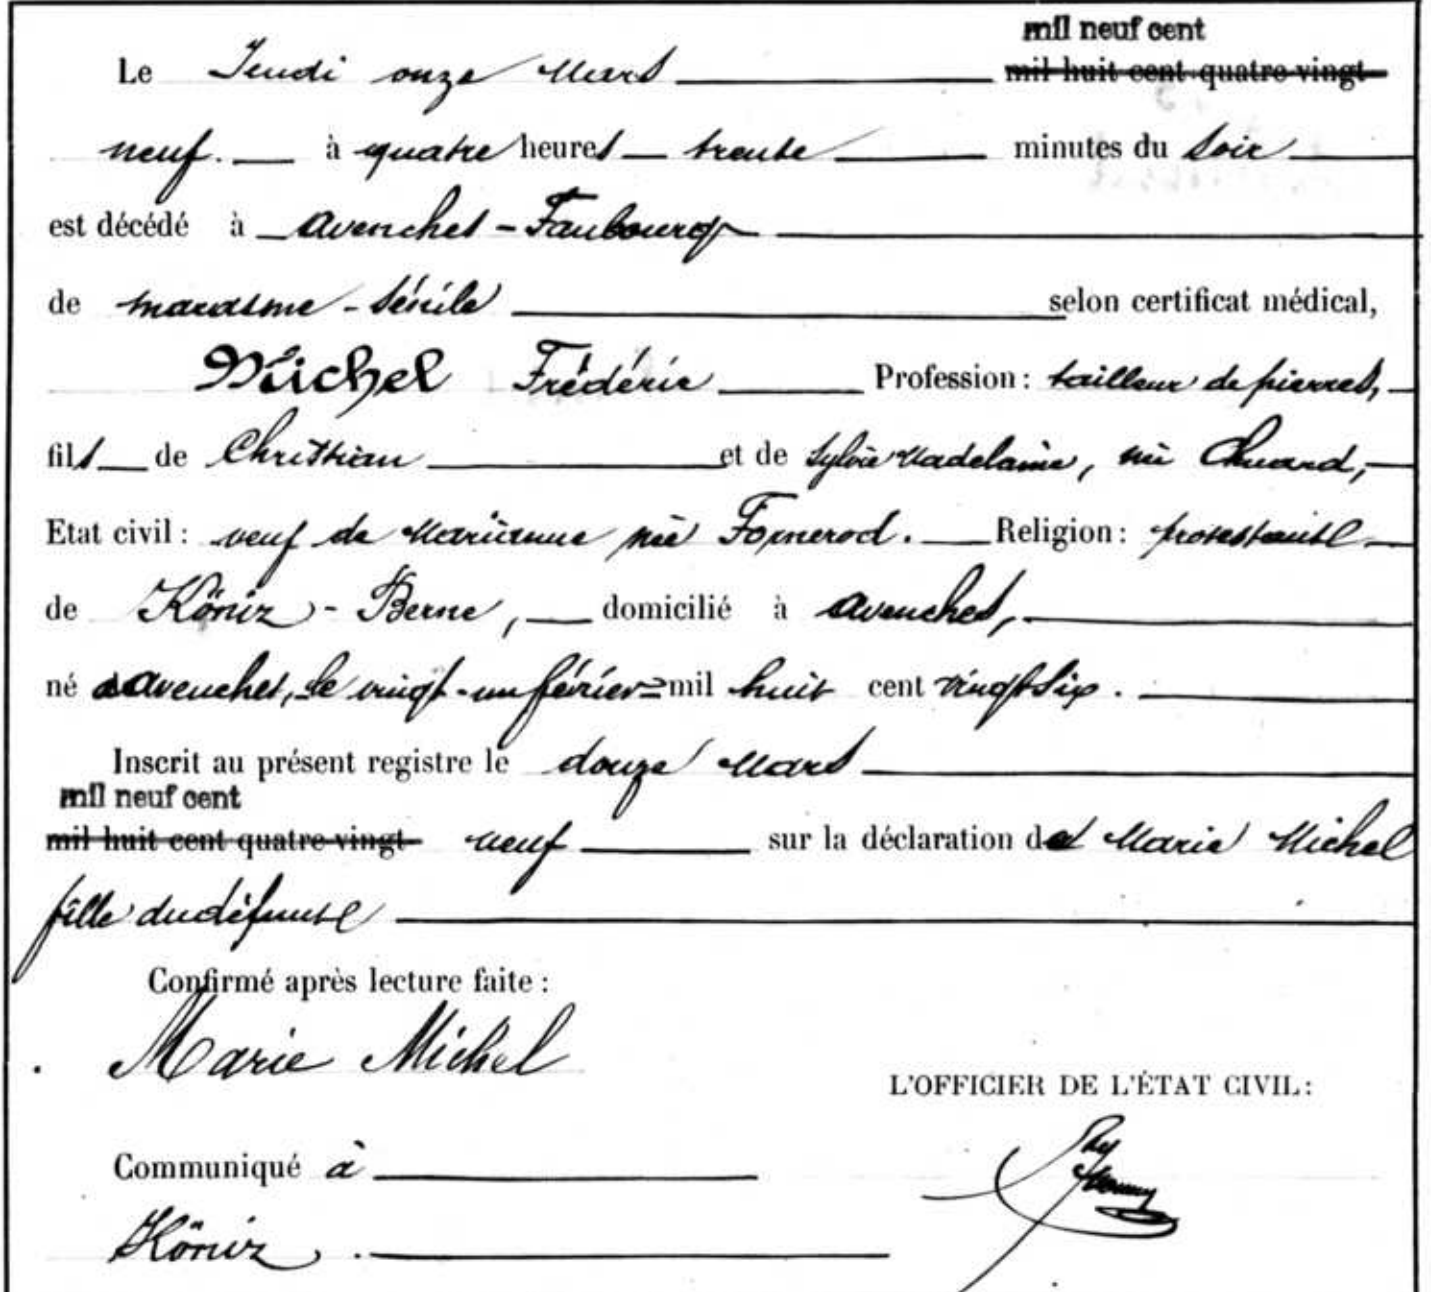 mil neuf cent
Le Jeudi onze Mars mil huit cent quatre-vingt
neuf. à quatre heures trente minutes du soir
est décédé à Avenches - Faubourg
de marasme - sénile selon certificat médical,
Michel Frédéric Profession : tailleur de pierres,
fils de Christian et de Sylvie Madelaine, née Chuard,
Etat civil : veuf de Marianne née Fornerod. Religion : protestante
de Köniz - Berne, domicilié à Avenches,
né à Avenches, le vingt-un février mil huit cent vingt six.
Inscrit au présent registre le douze Mars
mil neuf cent
mil huit cent quatre-vingt neuf sur la déclaration de Marie Michel
fille du défunt
Confirmé après lecture faite :
Marie Michel
L'OFFICIER DE L'ÉTAT CIVIL :
Communiqué à
Köniz.